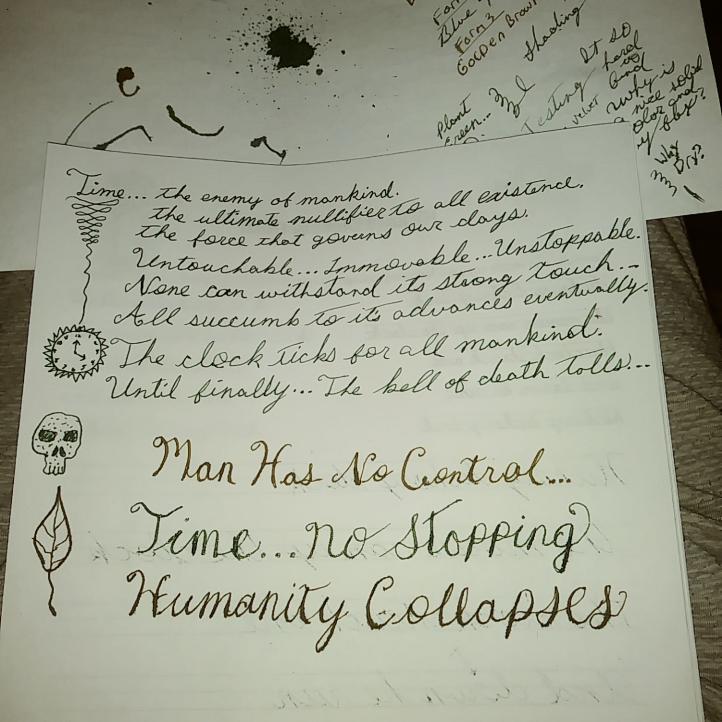 Form
Blue
Form 3
Golden Brown
Shading
Plant
Green...
Testing
It so
hard
Velvet
and
Why is
a nice solid
color and
Way
Dry?
Time... the enemy of mankind.
the ultimate nullifier to all existence.
the force that governs our days.
Untouchable... Immovable... Unstoppable.
None can withstand its strong touch...
All succumb to it's advances eventually.
The clock ticks for all mankind.
Until finally... The bell of death tolls...
Man Has No Control...
Time... no stopping
Humanity Collapses